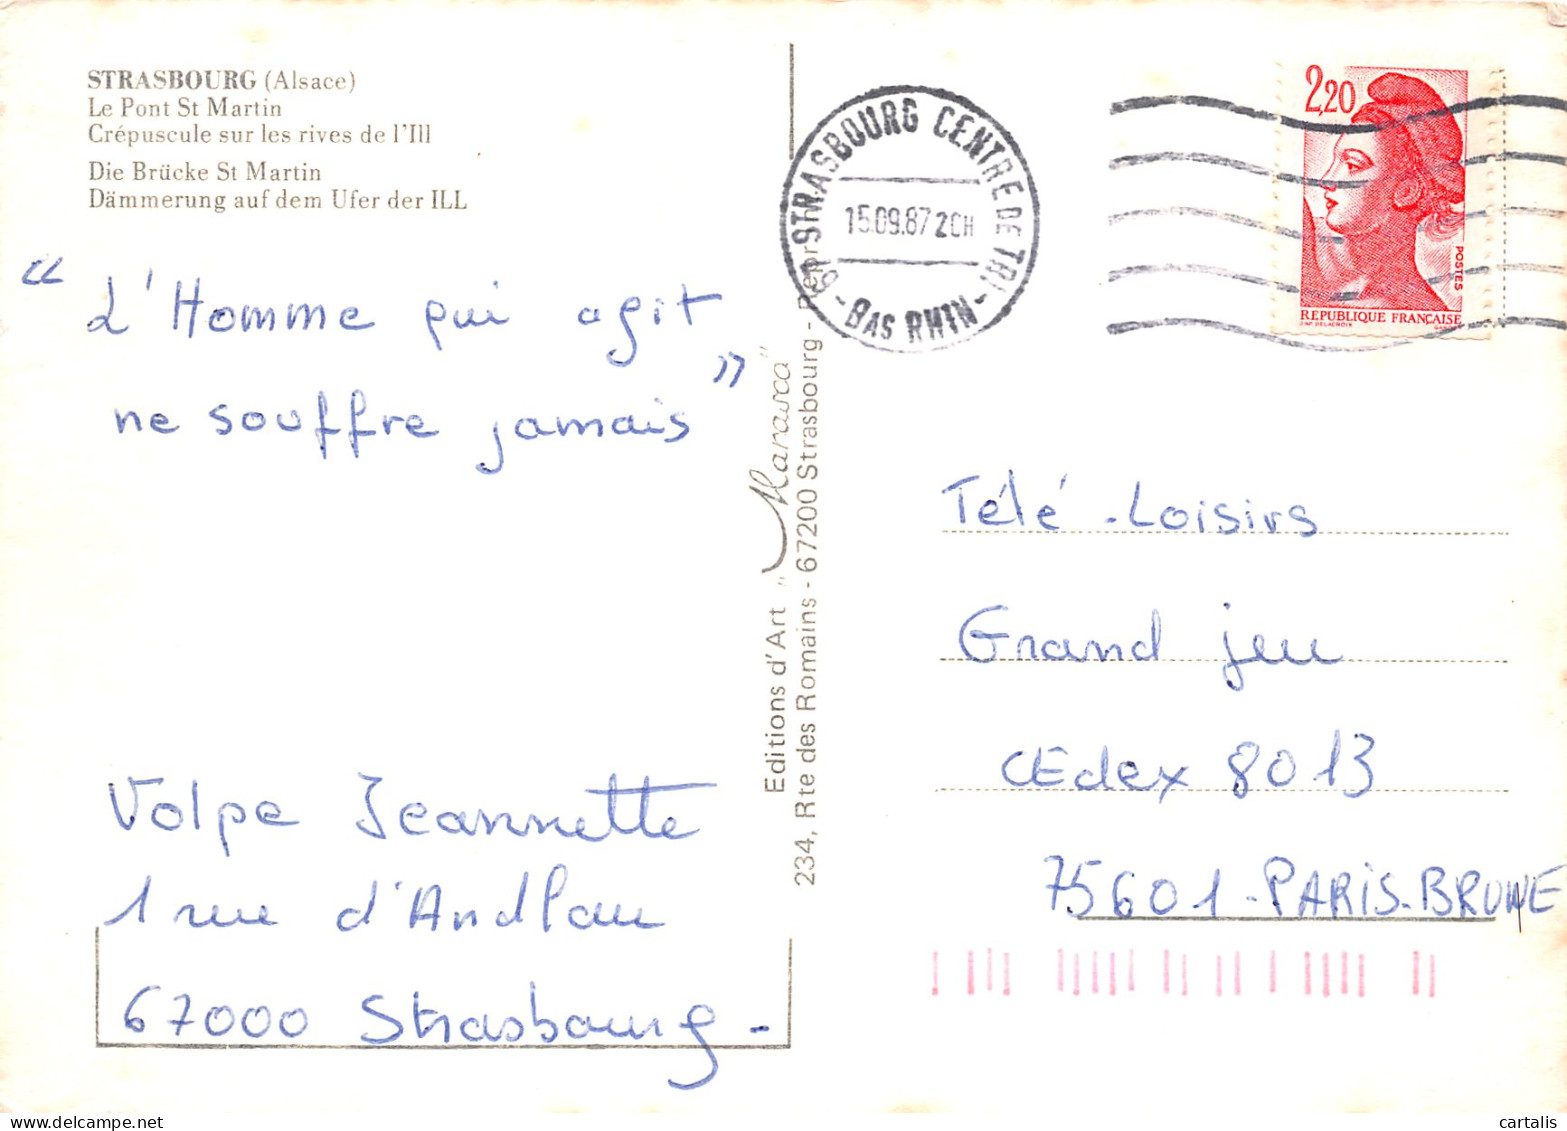 STRASBOURG (Alsace)
Le Pont St Martin
Crépuscule sur les rives de l'Ill
Die Brücke St Martin
Dämmerung auf dem Ufer der ILL
“ L'Homme qui agit
ne souffre jamais ”
Volpe Jeannette
1 rue d'Andlau
67000 Strasbourg -
Editions d'Art „Marasca"
234, Rte des Romains - 67200 Strasbourg - Repr
67 STRASBOURG CENTRE DE TRI
15.09.87 20H
- BAS RHIN -
2,20
POSTES
REPUBLIQUE FRANÇAISE
Télé-Loisirs
Grand jeu
CEdex 8013
75601-PARIS-BRUNE
cartalis